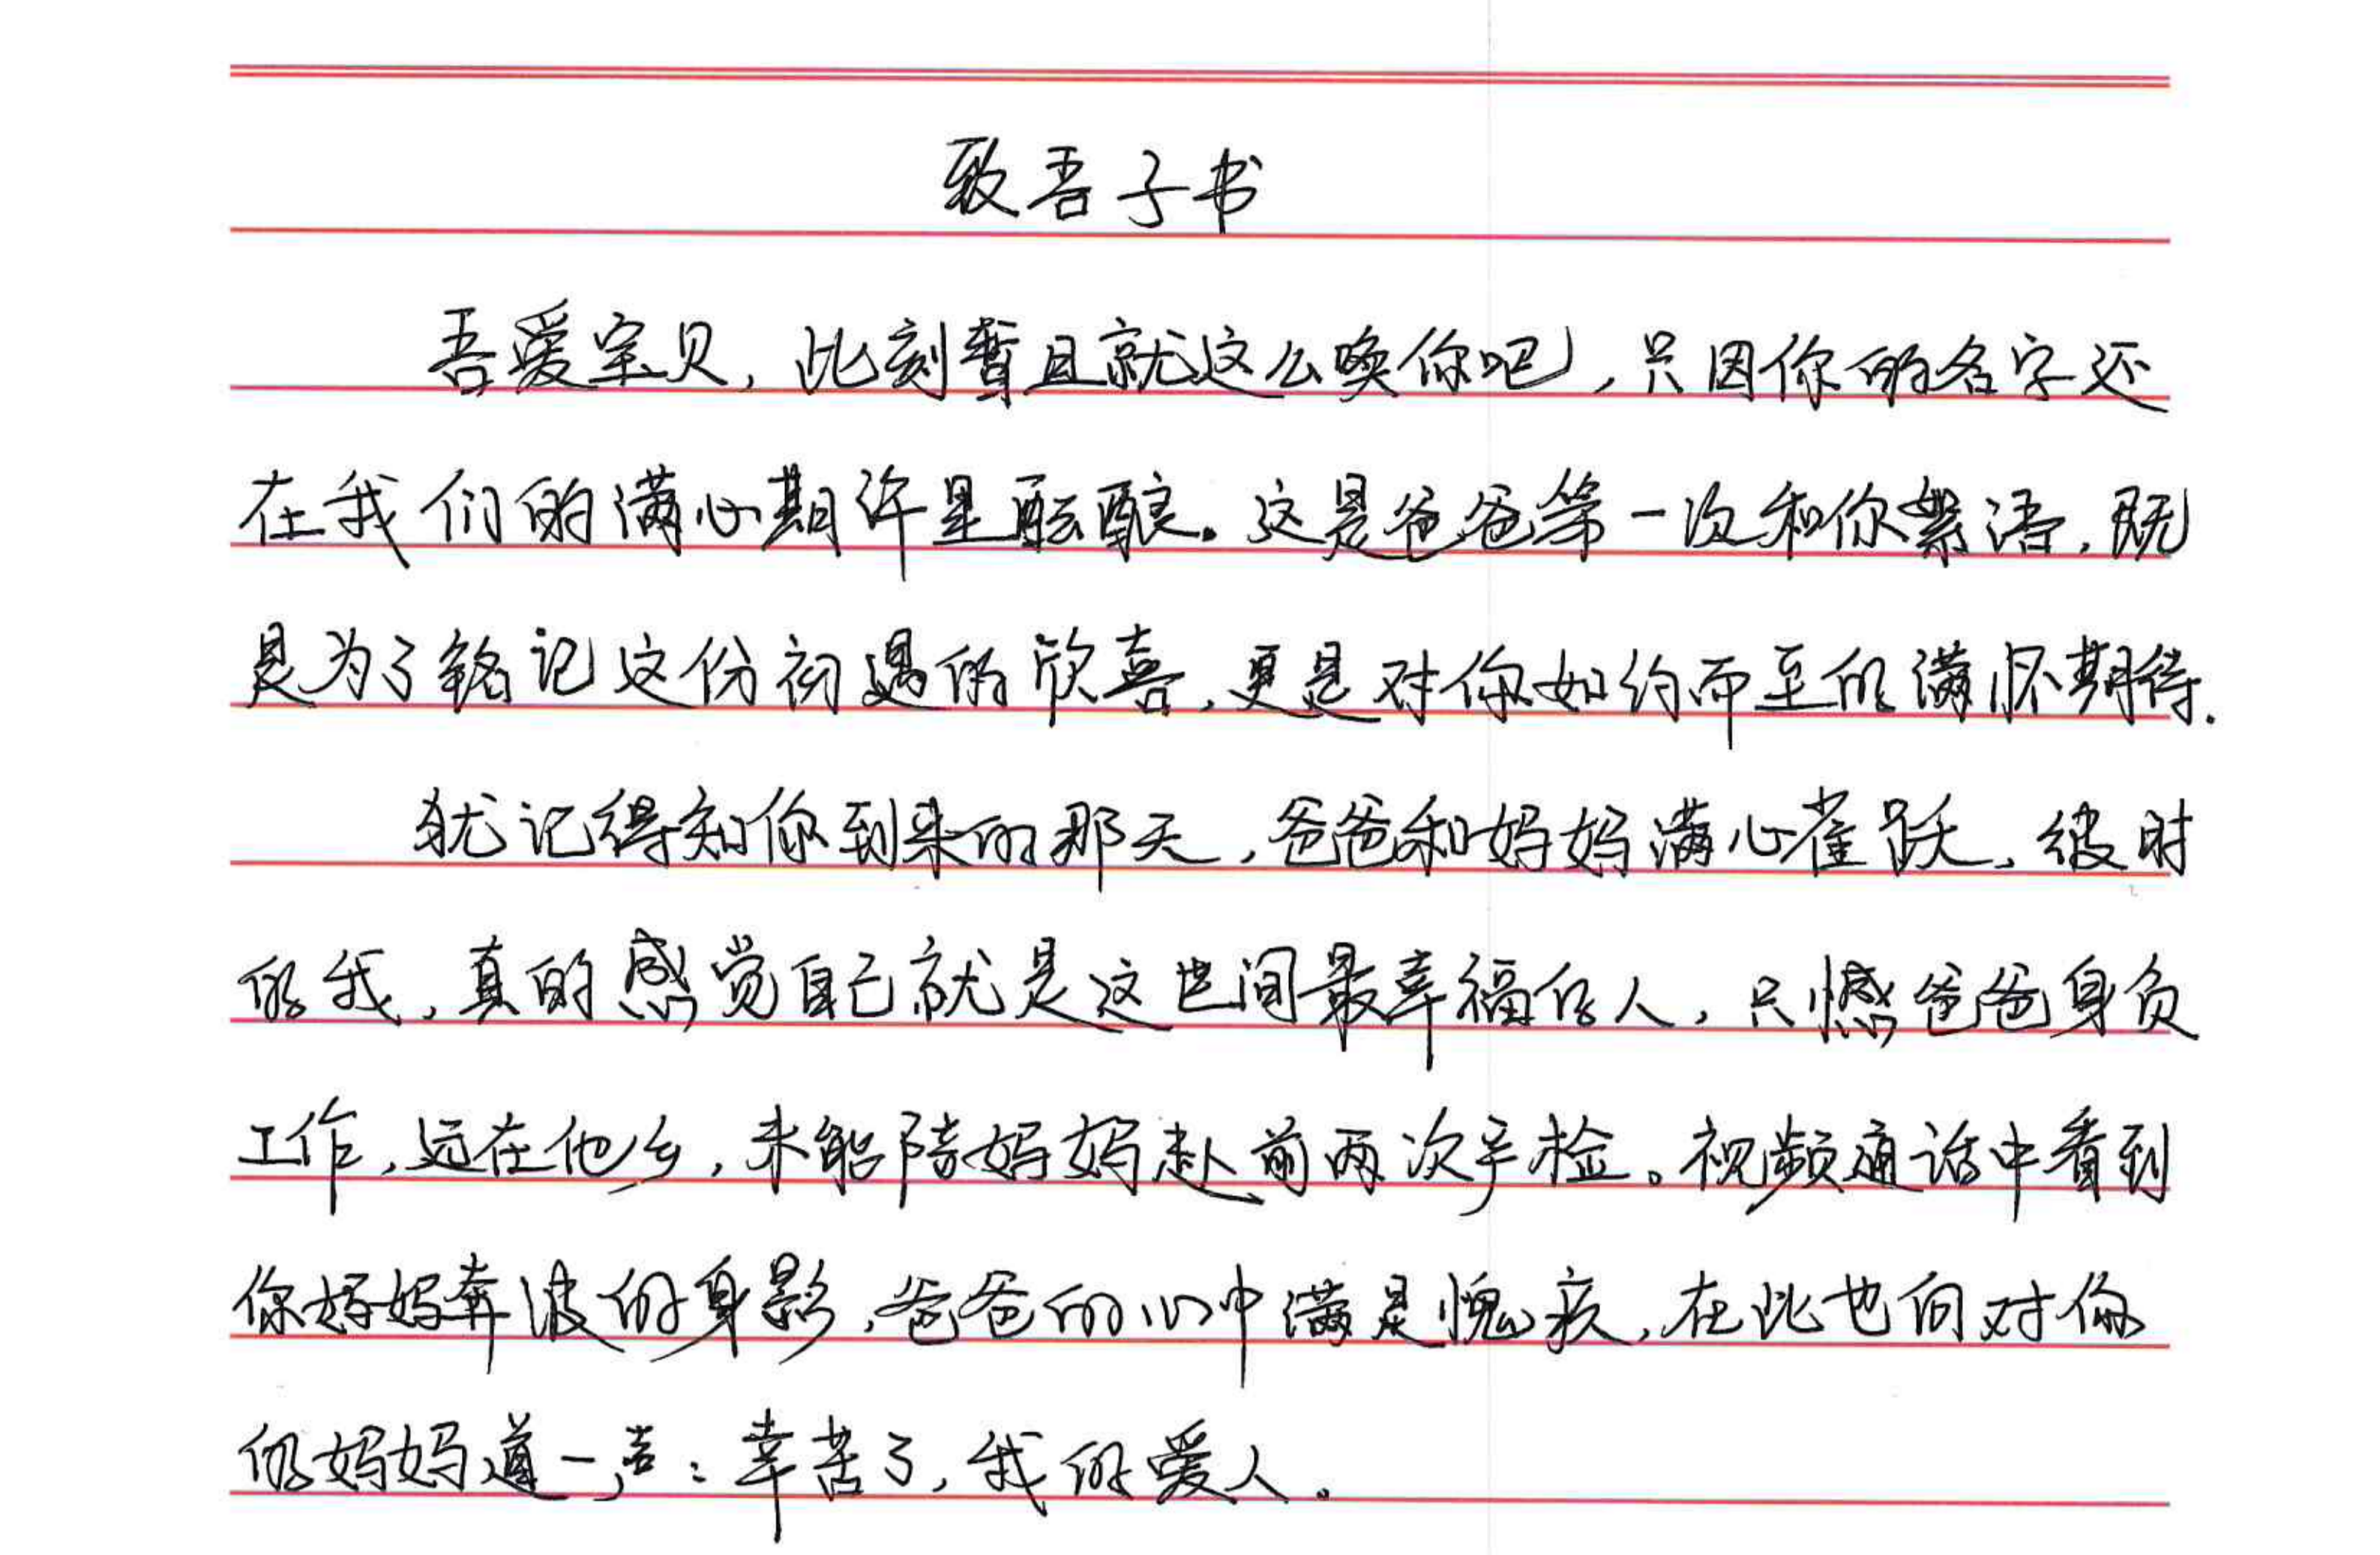 致吾子书
吾爱宝贝，此刻暂且就这么唤你吧，只因你的名字还
在我们的满心期许里酝酿。这是爸爸第一次和你絮语，既
是为了铭记这份初遇的欣喜，更是对你如约而至的满怀期待.
犹记得知你到来的那天，爸爸和妈妈满心雀跃，彼时
的我，真的感觉自己就是这世间最幸福的人，只憾爸爸身负
工作，远在他乡，未能陪妈妈赴前两次产检。视频通话中看到
你妈妈奔波的身影，爸爸的心中满是愧疚，在此也向对你
的妈妈道一声：幸苦了，我的爱人。